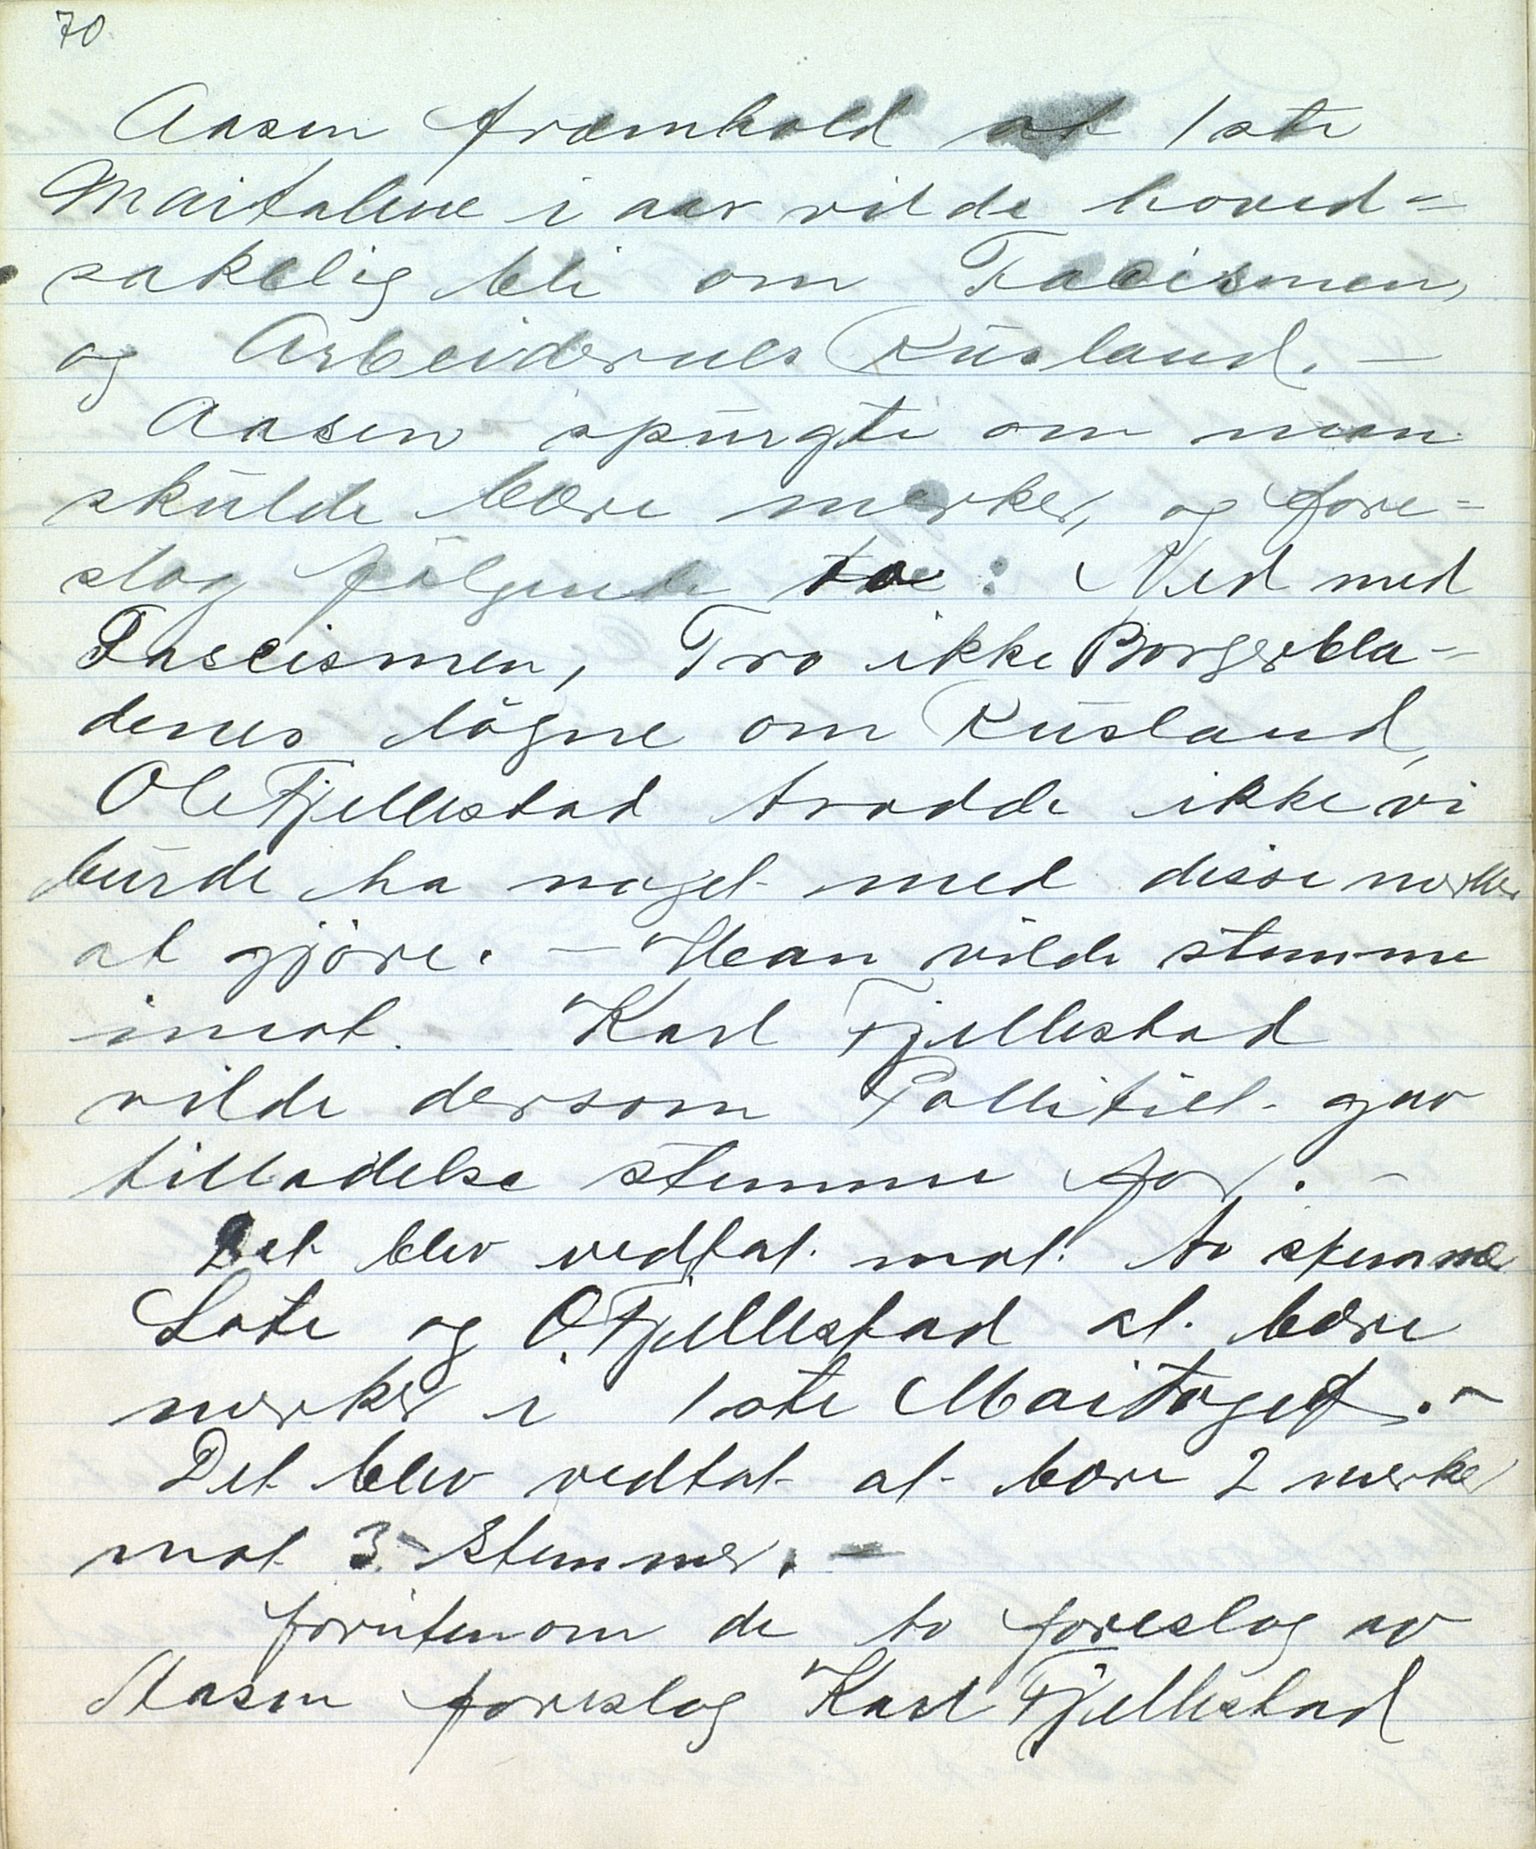 70
Aasen fræmhold at 1ste
Maitalene i aar vilde hoved=
sakelig bli om Facismen,
og Arbeidernes Rusland. —
Aasen spurgte om man
skulde bære merker, og fore=
slog følgende to: Ned med
Fascismen, Tro ikke Borgerbla=
denes løgne om Rusland,
Ole Fjellestad trodde ikke vi
burde ha noget med disse merker
at gjøre. — Han vilde stemme
imot. Karl Fjellestad
vilde dersom Pollitiet gav
tilladelse stemme for. —
Det blev vedtat mot to stemmer
Lote og O. Fjellestad at bære
merker i 1ste Maitoget. —
Det blev vedtat at bære 2 merker
mot 3 stemmer. —
foruten om de to foreslag av
Aasen foreslog Karl Fjellestad